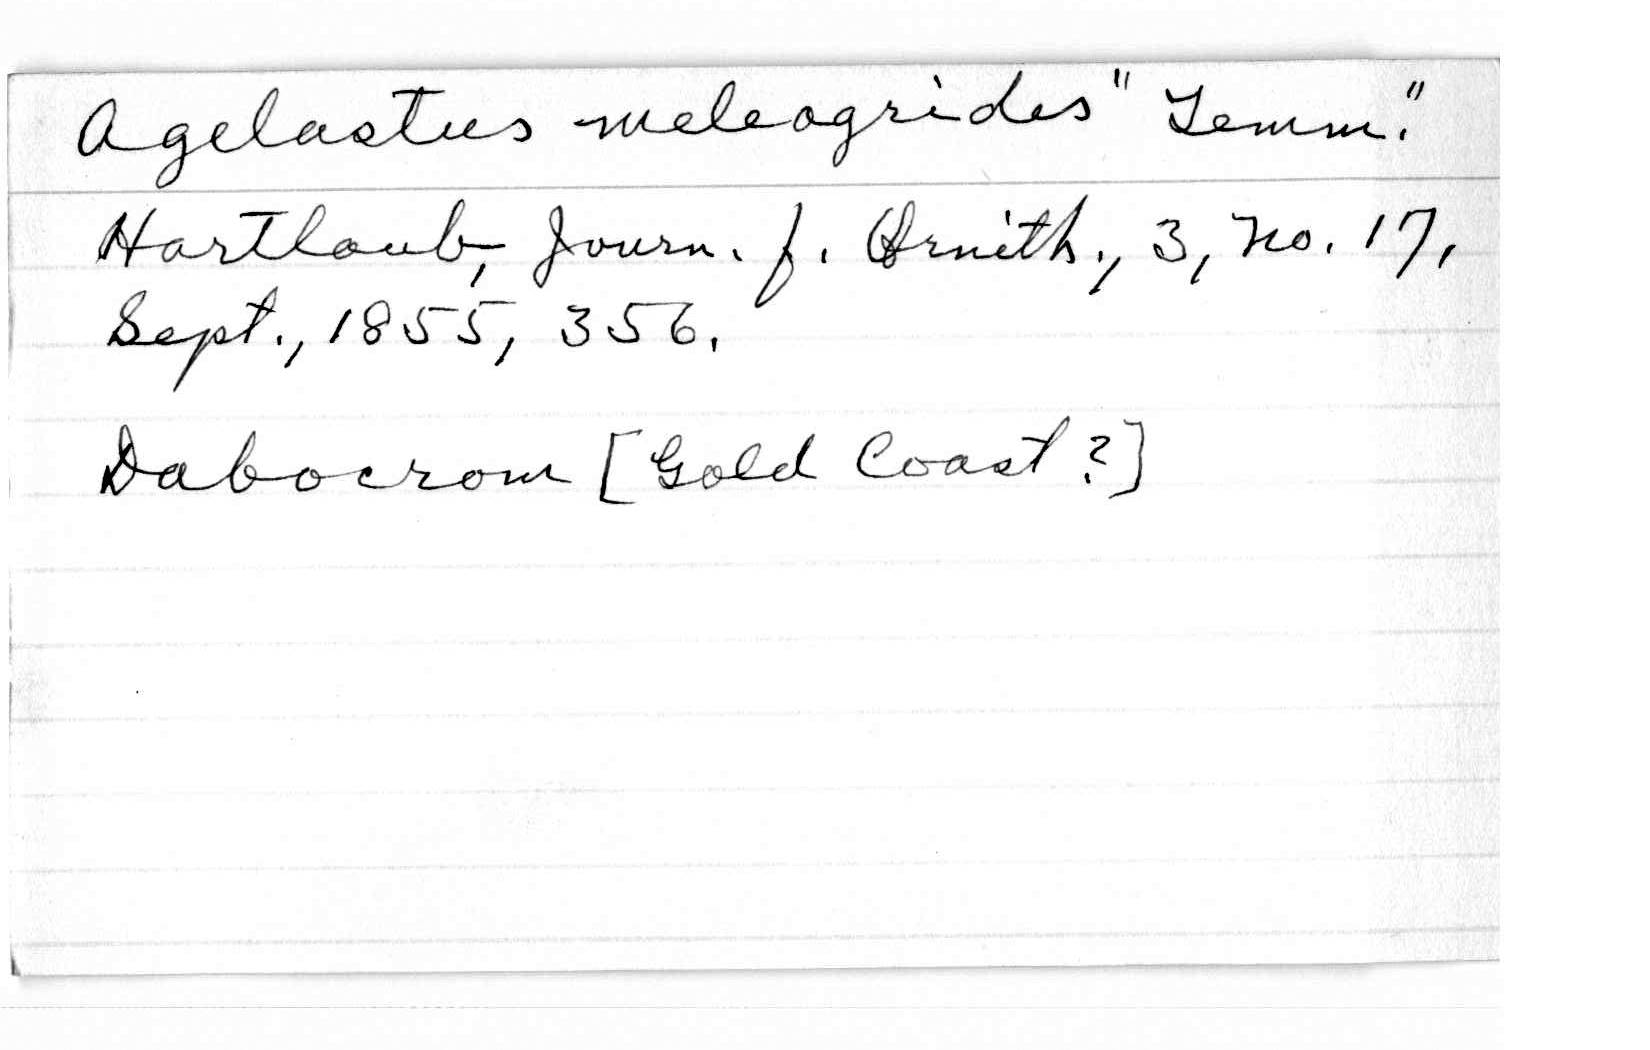 Agelastus meleagrides "Temm."
Hartlaub, Journ. f. Ornith., 3, no. 17,
Sept., 1855, 356.
Dabocrom [Gold Coast?]